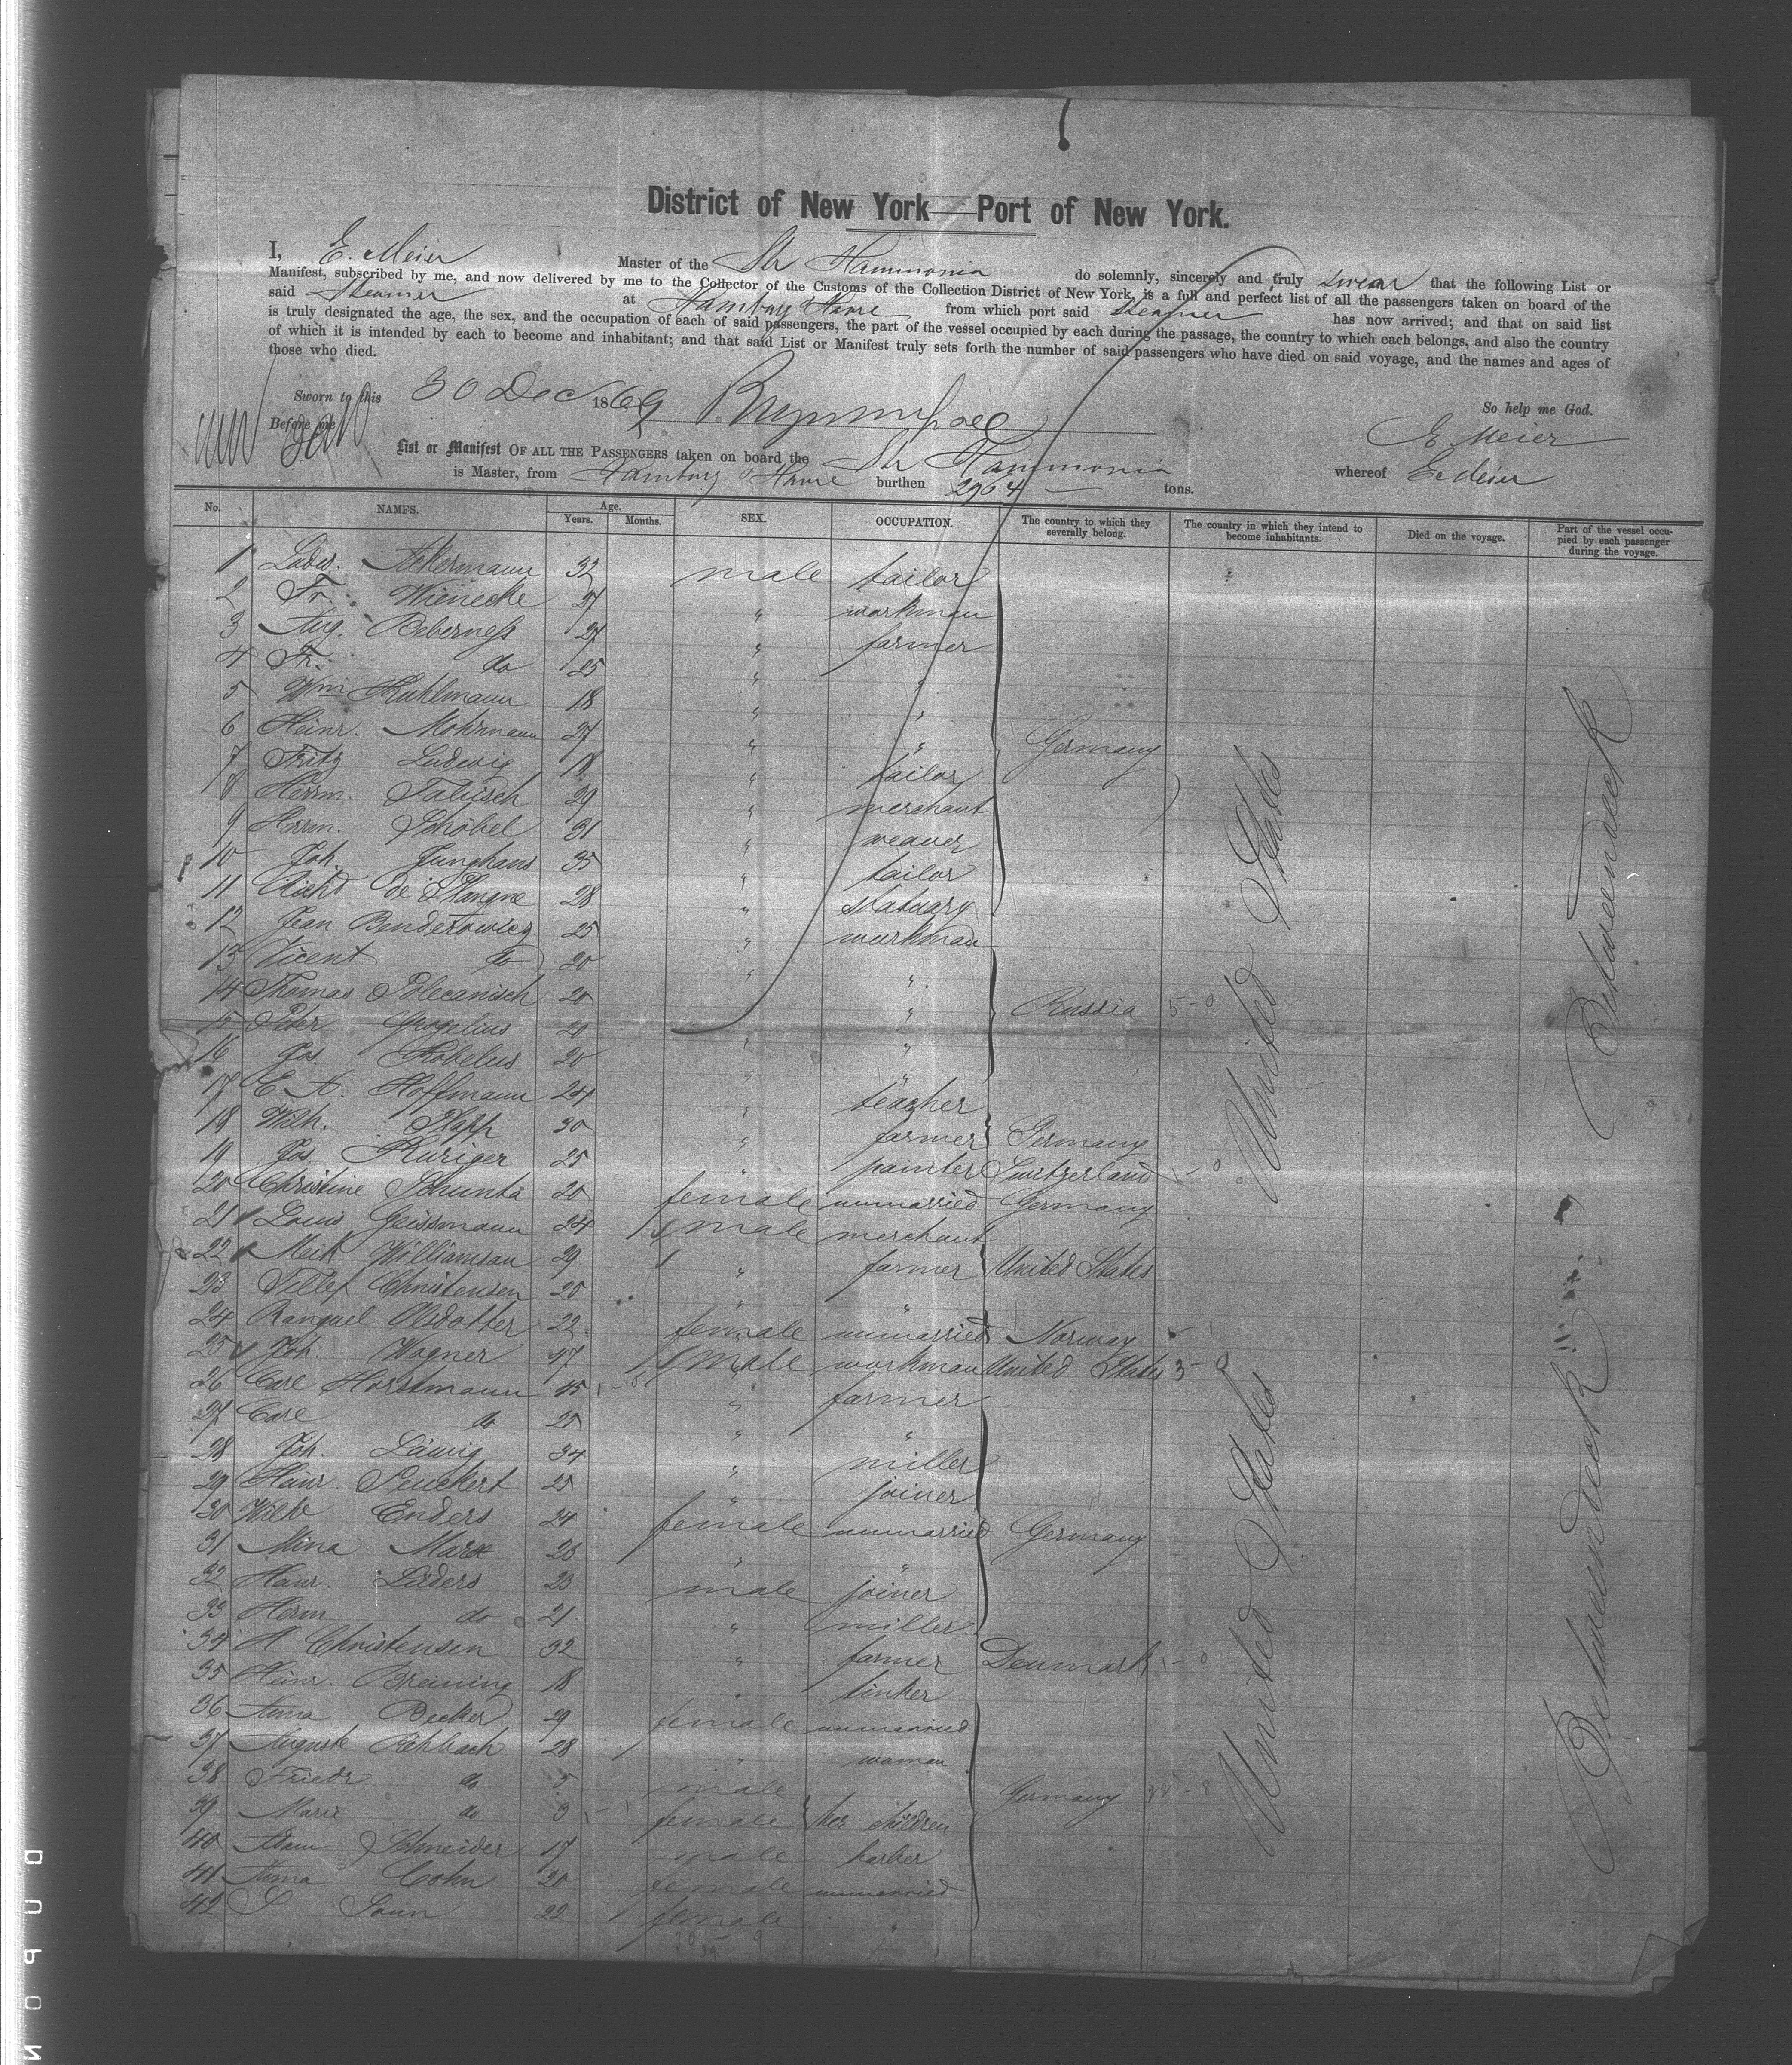 District of New York—Port of New York.
I, E. Meier Master of the Str Hammonia do solemnly, sincerely and truly swear that the following List or
Manifest, subscribed by me, and now delivered by me to the Collector of the Customs of the Collection District of New York, is a full and perfect list of all the passengers taken on board of the
said Steamer at Hamburg Havre from which port said Steamer has now arrived; and that on said list
is truly designated the age, the sex, and the occupation of each of said passengers, the part of the vessel occupied by each during the passage, the country to which each belongs, and also the country
of which it is intended by each to become and inhabitant; and that said List or Manifest truly sets forth the number of said passengers who have died on said voyage, and the names and ages of
those who died.
Sworn to this 30 Dec 1869 So help me God.
Before me E Meier
List or Manifest OF ALL THE PASSENGERS taken on board the Str Hammonia whereof E Meier
is Master, from Hamburg Havre burthen 2964 tons.
No. NAMES. Age. Years. Months. SEX. OCCUPATION. The country to which they severally belong. The country in which they intend to become inhabitants. Died on the voyage. Part of the vessel occupied by each passenger during the voyage.
1 Ludw. Ackermann 32 male tailor
2 Fr. Wienecke 27 " workman
3 Aug. Beberness 27 " farmer
4 Fr. do 25 " "
5 Wm Kuhlmann 18 " "
6 Heinr. Mohrmann 27 " " Germany
7 Fritz Ludwig 18 " tailor
8 Herrm. 29 " merchant
9 Herm. Schöbel 31 " weaver
10 Joh. Junghans 35 " tailor
11 28 " statuary
12 Jean 25 " workman
13 Vicent do 20 " "
14 Thomas 20 " " Russia 5-0
15 Peter "
16 Jos. 20 " "
17 E. A. Hoffmann 24 " teacher
18 Wilh. Rapp 30 " farmer Germany
19 Jos. 25 " painter Switzerland
20 Christine 20 female unmarried Germany
21 Louis Geissmann 24 male merchant
22 Williamson 29 " farmer United States
23 Christensen 20 " "
24 Olsdotter 22 female unmarried Norway
25 Joh. Wagner 47 male workman United States
26 Carl Horstmann 45 " farmer
27 Carl do 20 " "
28 Joh. 34 " miller
29 Heinr. Peuckert 25 " joiner
30 Enders 24 female unmarried Germany
31 Mina Marx " "
32 Heinr. Lüders 23 male joiner
33 Herm do 21 " miller
34 H Christensen 32 " farmer Denmark
35 Heinr. Breining 18 " tinker
36 Anna Becker 29 female unmarried
37 Auguste Rehbach 28 " woman
38 Friedr do 5 male
39 Marie do 3 female her children Germany
40 Adam Schneider 17 male barber
41 Anna Cohn 20 female unmarried
42 S 22 female "
United States
United States
Betweendeck
Betweendeck